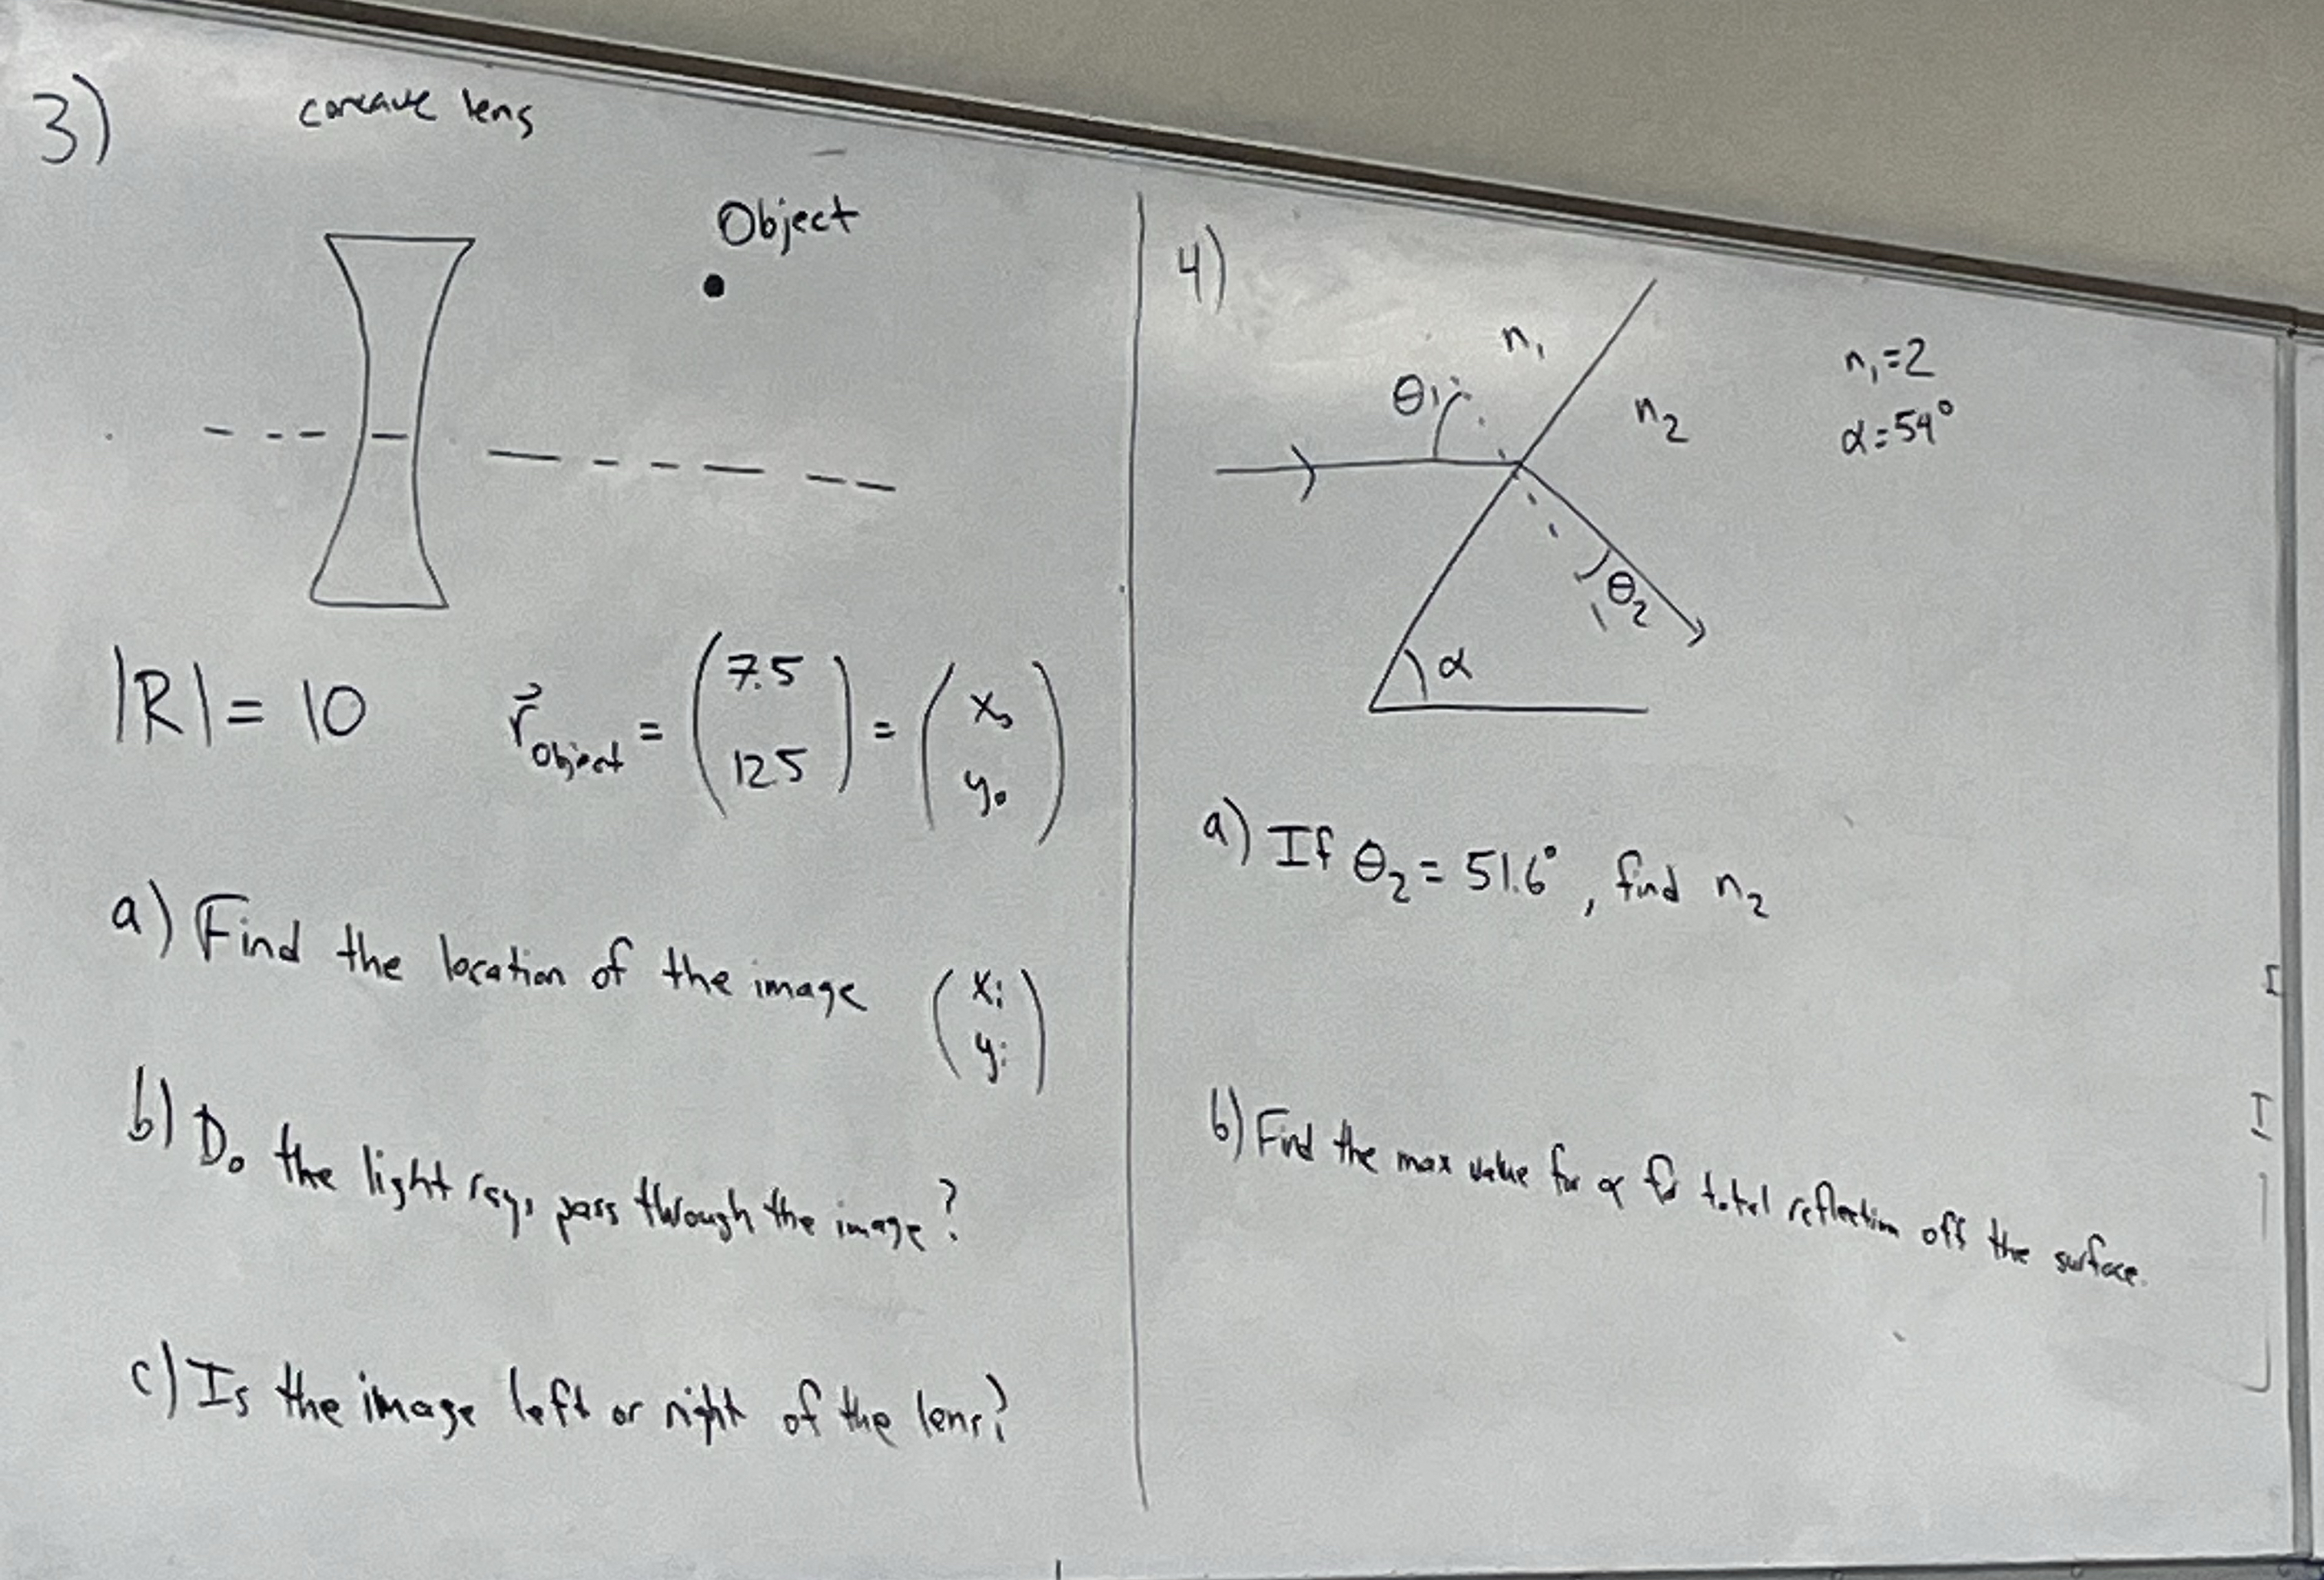 3)
concave lens
Object
|R| = 10
r⃗ Object = (7.5 12.5) = (x₀ y₀)
a) Find the location of the image (xᵢ yᵢ)
b) Do the light rays pass through the image?
c) Is the image left or right of the lens?
4)
n₁
n₂
θ₁
θ₂
α
n₁=2
α=54°
a) If θ₂ = 51.6°, find n₂
b) Find the max value for α for total reflection off the surface.